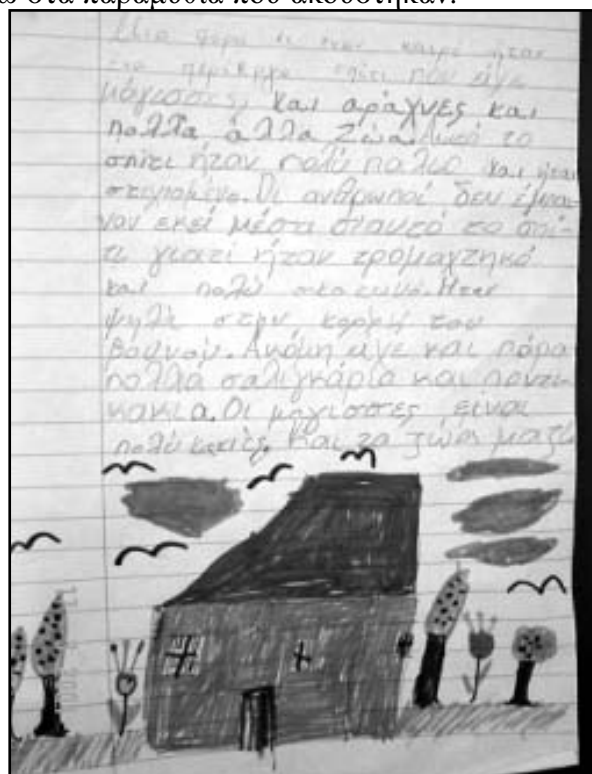 στα παραμύθια που ακούστηκαν.
Μια φορα κι εναν καιρο ήταν
ένα περίεργο σπίτι που είχε
μάγισσες, και αράχνες και
πολλά άλλα ζώα. Αυτό το
σπίτι ήταν πολύ παλιο και ήταν
στιχιομένο. Οι ανθρωποι δεν έμπαι-
ναν εκεί μέσα σ'αυτό το σπί-
τι γιατί ήταν τρομαχτηκό
και πολύ σκοτεινό. Ηταν
ψηλά στην κορφή του
βουνού. Ακόμη είχε και πάρα
πολλά σαλιγκάρια και ποντι-
κακια. Οι μάγισσες είναι
πολύ κακιές. Και τα ζώα μαζί